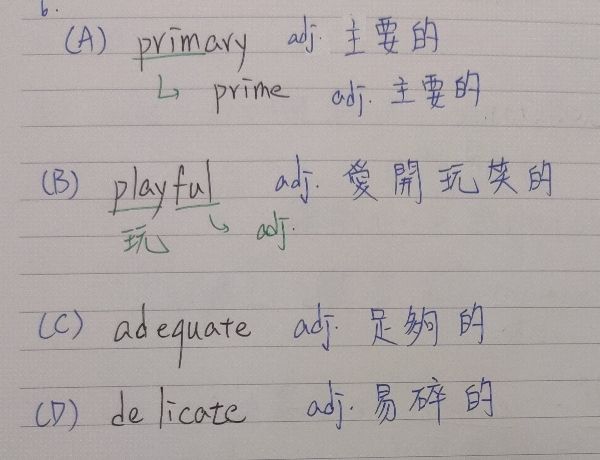 6.
(A) primary adj. 主要的
↳ prime adj. 主要的
(B) playful adj. 愛開玩笑的
玩 ↳ adj.
(C) adequate adj. 足夠的
(D) delicate adj. 易碎的